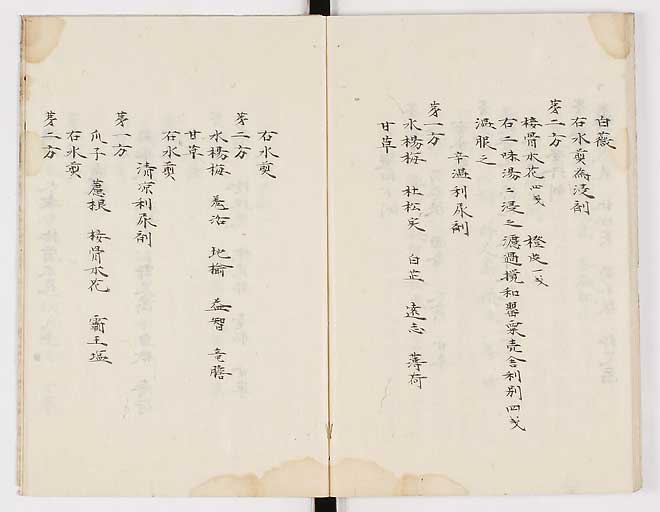 白薇
右水煎為浸剤
第二方
接骨木花四戔 橙皮一戔
右二味湯ニ浸之濾過攪和罌粟売舎利別四戔
温服之
辛温利尿剤
第一方
水楊梅 杜松実 白芷 遠志 薄荷
甘草
右水煎
第二方
水楊梅 地楡 益智 竜胆
甘草
右水煎
清凉利尿剤
第一方
瓜子 葱根 接骨木花 霸王塩
右水煎
第二方